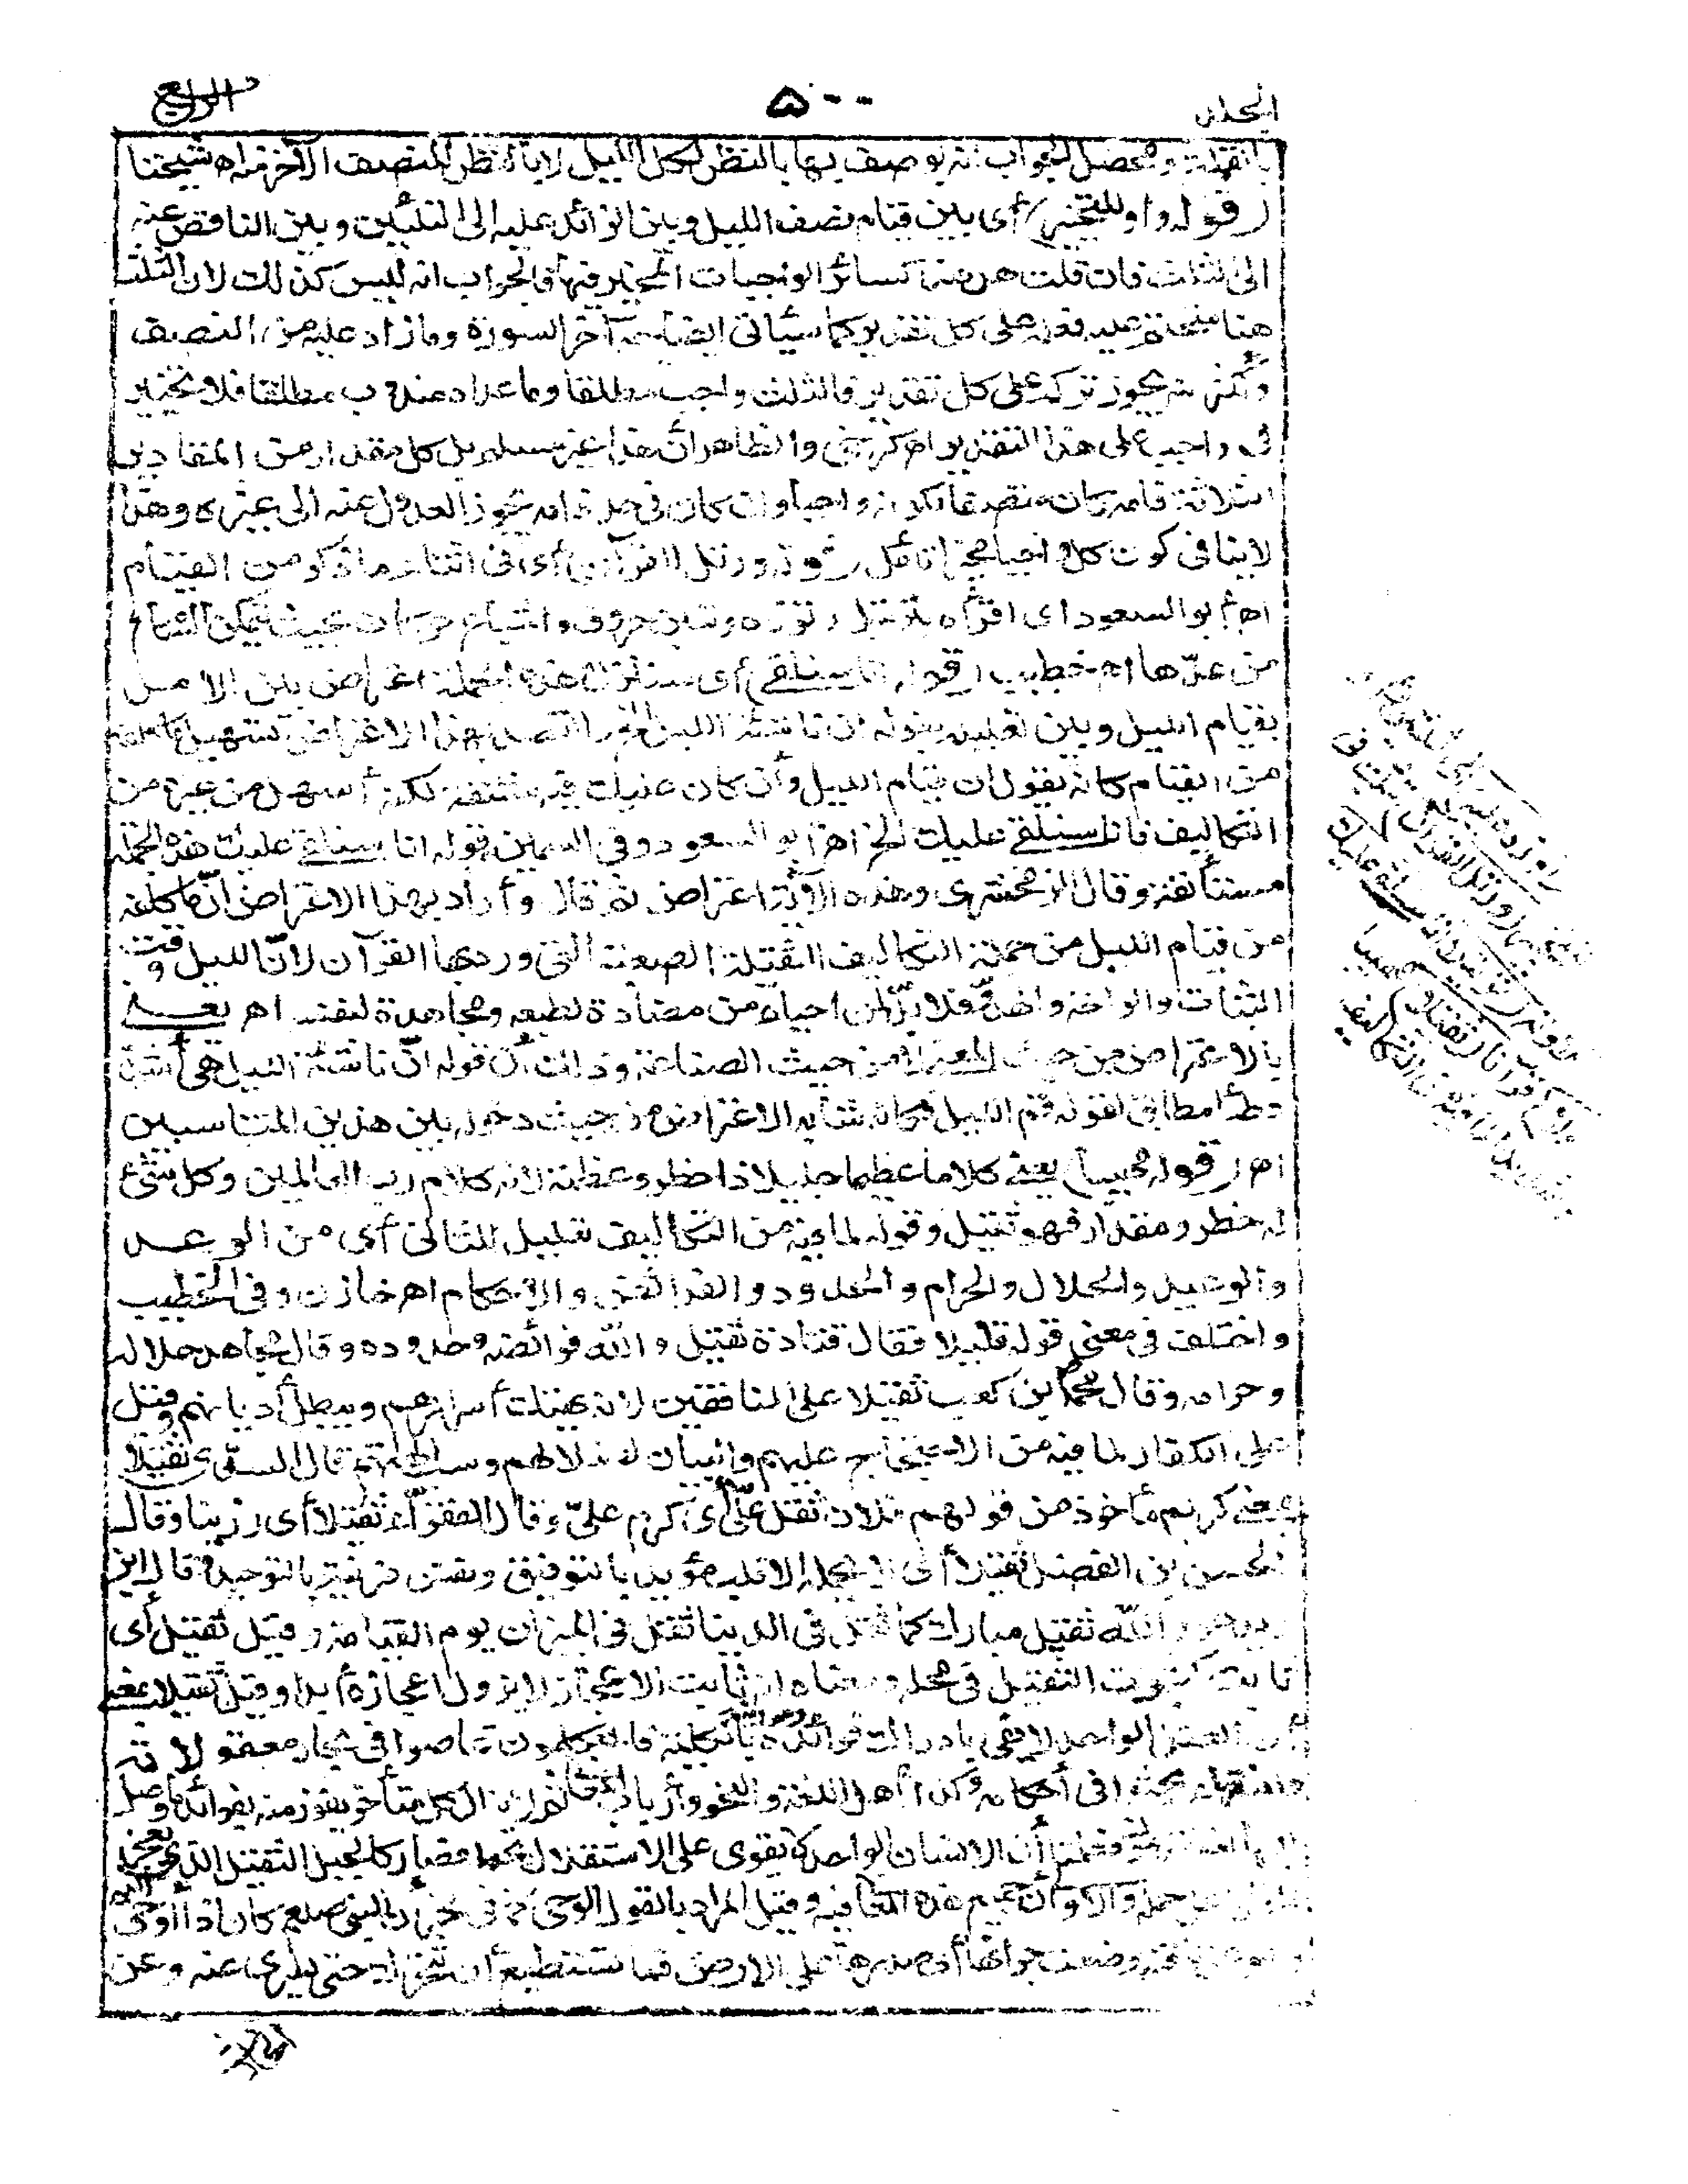 المجلد
٥٠٠
الرابع
بالقلة ومحصل الجواب انه يوصف بها بالنظر لكل الليل لا بالنظر للنصف الآخر منه اه شيخنا
(قوله وأو للتخيير) أى بين قيام نصف الليل وبين الزائد عليه الى الثلثين وبين الناقص عنه
الى الثلث فان قلت هذا كسائر الواجبات المخير فيها فالجواب انه ليس كذلك لان الثلث
هنا متحتم عليه فعله على كل تقدير كما سيأتى ايضا آخر السورة وما زاد عليه من النصف
وأكثر يجوز تركه على كل تقدير فالثلث واجب مطلقا وما عداه مندوب مطلقا فلا تخيير
فى واجب على هذا التقدير اه كرخى والظاهر ان هذا غير مسلم بل كل مقدار من المقادير
الثلاثة قامه كان متصفا بكونه واجبا وان كان فى حد ذاته يجوز العدول عنه الى غيره وهذا
لا ينافى كون كل واجبا مخيرا تأمل (قوله ورتل القرآن) أى فى اثناء ما ذكر من القيام
اه أبو السعود اى اقرأه بترتيل وتؤدة وتبيين حروف واشباع حركات بحيث يمكن السامع
من عدّها اه خطيب (قوله انا سنلقى) أى سننزل هذه الجملة اعتراض بين الامر
بقيام الليل وبين تعليله بقوله ان ناشئة الليل الخ القصد بهذا الاعتراض تسهيل ما كلفه
من القيام كأنه يقول ان قيام الليل وان كان عليك فيه مشقة لكنه أسهل من غيره من
التكاليف فانا سنلقى عليك الخ اه أبو السعود وفى السمين قوله انا سنلقى عليك هذه الجملة
مستأنفة وقال الزمخشرى وهذه الآية اعتراض ثم قال وأراد بهذا الاعتراض أنّ ما كلفه
من قيام الليل من جملة التكاليف الثقيلة الصعبة التى ورد بها القرآن لانّ الليل وقت
الثبات والراحة والهدو فلا بدّ لمن احياه من مضادة لطبعه ومجاهدة لنفسه اه يعنى
بالاعتراض من حيث المعنى لا من حيث الصناعة وذلك أن قوله انّ ناشئة الليل هى أشدّ
وطأ مطابق لقوله قم الليل فكأنه شابه الاعتراض من حيث دخوله بين هذين المتناسبين
اه (قوله مهيبا) يعنى كلاما عظيما جليلا ذا خطر وعظمة لانه كلام رب العالمين وكل شئ
له خطر ومقدار فهو ثقيل وقوله لما فيه من التكاليف تعليل للثانى أى من الوعد
والوعيد والحلال والحرام والحدود والفرائض والاحكام اه خازن وفى الخطيب
واختلف فى معنى قوله ثقيلا فقال قتادة ثقيل والله فرائضه وحدوده وقال مجاهد حلاله
وحرامه وقال محمد بن كعب ثقيلا على المنافقين لانه يهتك أسرارهم ويبطل أديانهم وقيل
على الكفار لما فيه من الاحتجاج عليهم والبيان لضلالهم وسب آلهتهم قال السدّى ثقيلا
بمعنى كريم مأخوذ من قولهم فلان ثقل علىّ أى كرم علىّ وقال الفرّاء ثقيلا أى رزينا وقال
الحسن بن الفضل ثقيلا أى لا يحمله إلا قلب مؤيد بالتوفيق ونفس مزينة بالتوحيد وقال ابن
زيد هو والله ثقيل مبارك كما ثقل فى الدنيا ثقل فى الميزان يوم القيامة وقيل ثقيل أى
ثابت كثبوت الثقيل فى محله ومعناه انه ثابت الاعجاز لا يزول اعجازه أبدا وقيل ثقيلا بمعنى
أن العقل الواحد لا يفى بادراك فوائده ومعانيه بالكلية فالمتكلمون غاصوا فى بحار معقولاته
والفقهاء بحثوا فى أحكامه وكذا أهل اللغة والنحو وأرباب المعانى ثم لا يزال كل متأخر يفوز منه بفوائد ما وصل
اليها المتقدمون فعلمنا أن الانسان الواحد لا يقوى على الاستقلال بحمله فصار كالجبل الثقيل الذى يعجز
الخلق عن حمله والاولى أن جميع هذه المعانى فيه وقيل المراد بالقول الوحى كما فى الخبر أن النبى صلعم كان اذا أوحى اليه
وهو على ناقته وضعت جرانها أى صدرها على الارض فما تستطيع أن تتحرك حتى يسرى عنه وعن